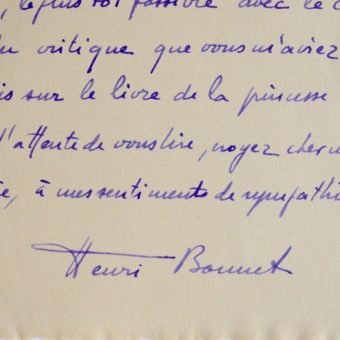 , le plus tôt possible avec le
critique que vous m'aviez
sur le livre de la princesse
l'attente de vous lire, croyez cher
à mes sentiments de sympathi
Henri Bonnet